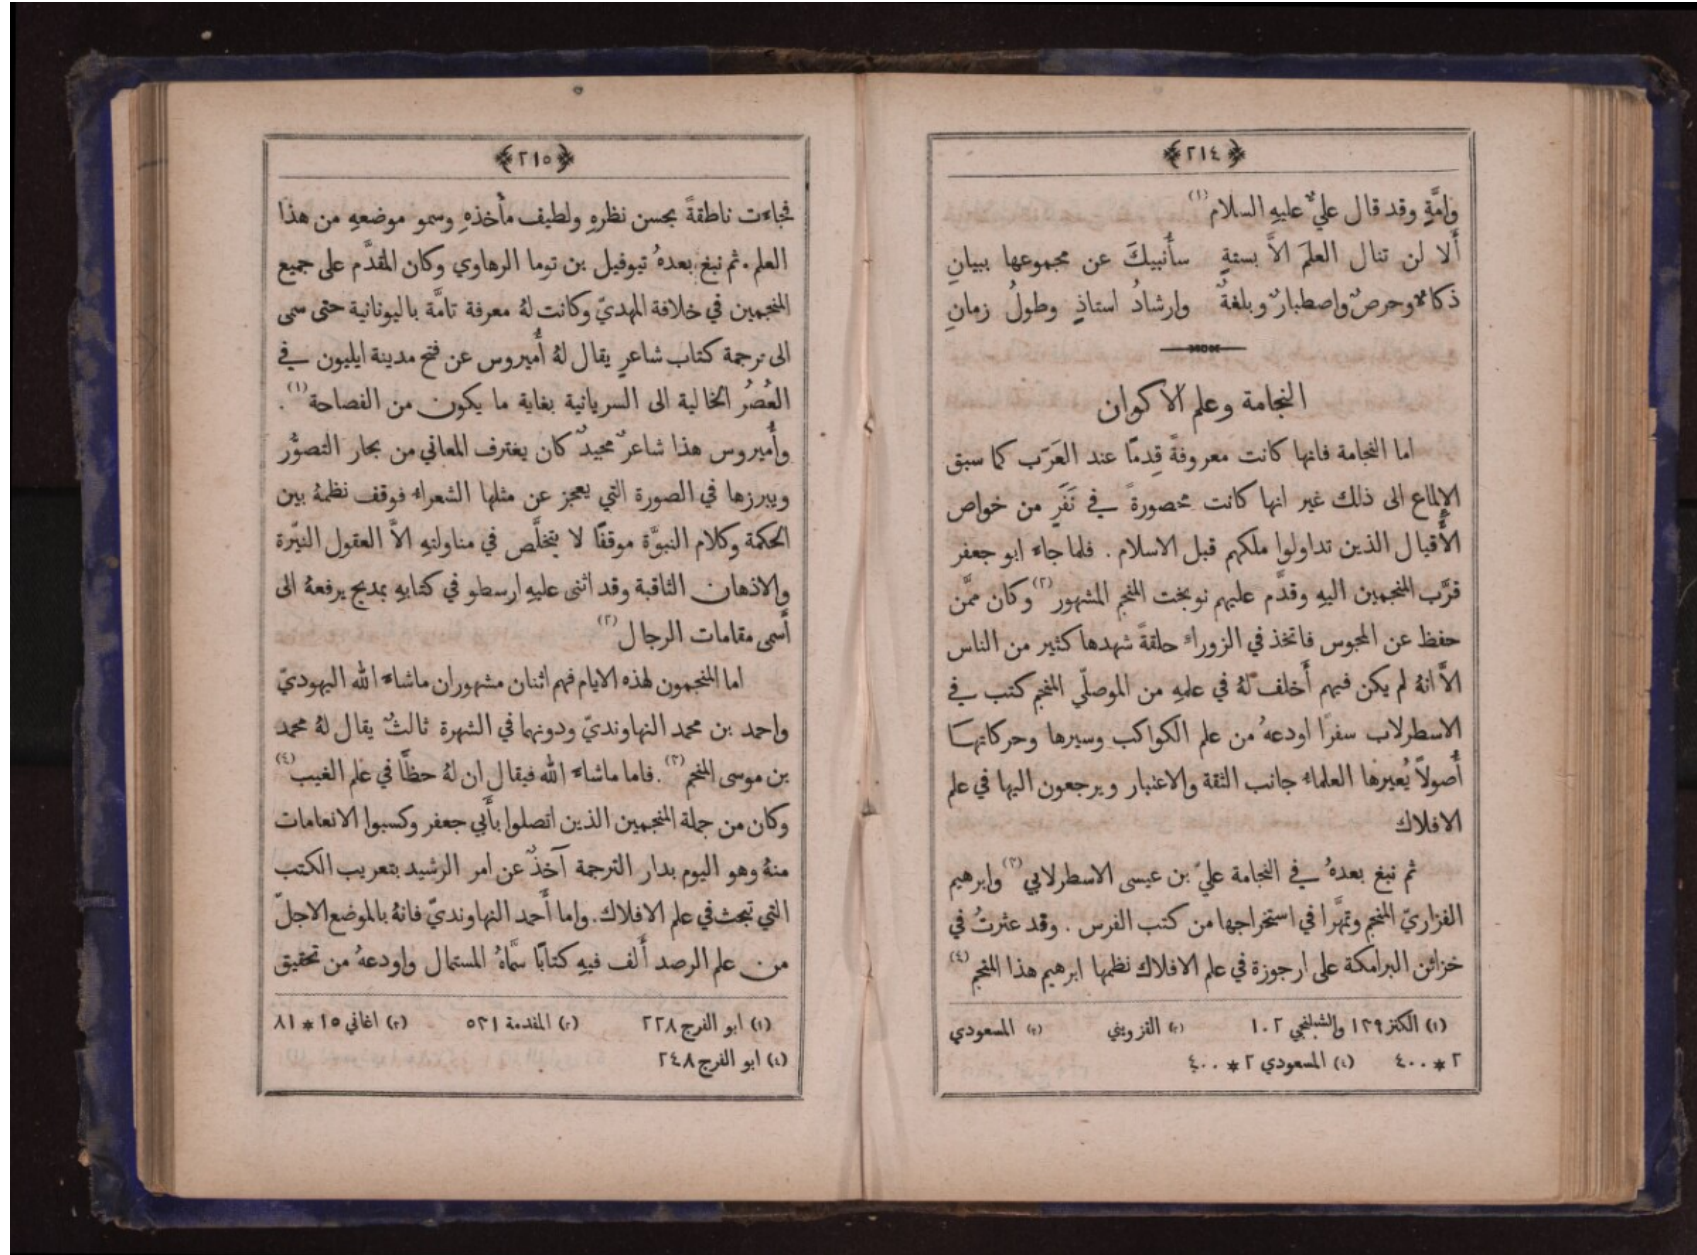 ﴿٢١٤﴾
وإمَّةٍ وقد قال عليٌّ عليهِ السلام (١)
أَلا لن تنال العلمَ الاَّ بستةٍ سأُنبيكَ عن مجموعها ببيانِ
ذكاءٌ وحرصٌ واصطبارٌ وبلغةٌ وإرشادُ استاذٍ وطولُ زمانِ
النجامة وعلم الاكوان
اما النجامة فانها كانت معروفةً قِدمًا عند العَرَب كما سبق
الإِلماع الى ذلك غير انها كانت محصورةً في نَفَرٍ من خواص
الأَقيال الذين تداولوا ملكهم قبل الاسلام . فلما جاء ابو جعفر
قرَّب المنجمين اليهِ وقدَّم عليهم نوبخت المنجم المشهور (٢) وكان ممَّن
حفظ عن المجوس فاتخذ في الزوراء حلقةً شهدها كثير من الناس
الاَّ انهُ لم يكن فيهم أَخلف لهُ في علمهِ من الموصلّي المنجم كتب في
الاسطرلاب سفرًا اودعهُ من علم الكواكب وسيرها وحركاتهـا
أُصولاً يُعيرها العلماء جانب الثقة والاعنبار ويرجعون اليها في علم
الافلاك
ثم نبغ بعدهُ في النجامة عليّ بن عيسى الاسطرلابي (٣) وابرهيم
الفزاريّ المنجم وتمهَّرا في استخراجها من كتب الفرس . وقد عثرتُ في
خزائن البرامكة على ارجوزة في علم الافلاك نظمها ابرهيم هذا المنجم (٤)
(١) الكنز ١٢٩ والشبلنجي ١٠٢ (٢) القزويني (٣) المسعودي
٢ * ٤٠٠ (٤) المسعودي ٢ * ٤٠٠
﴿٢١٥﴾
فجاءت ناطقةً بحسن نظرهِ ولطيف مأخذهِ وسمو موضعهِ من هذا
العلم . ثم نبغ بعدهُ تيوفيل بن توما الرهاوي وكان المقدَّم على جميع
المنجمين في خلافة المهديّ وكانت لهُ معرفة تامَّة باليونانية حتى سمى
الى ترجمة كتاب شاعرٍ يقال لهُ أُميروس عن فتح مدينة ايليون في
العُصُر الخالية الى السريانية بغاية ما يكون من الفصاحة (١) .
وأُميروس هذا شاعرٌ مجيدٌ كان يغترف المعاني من بحار التصوُّر
ويبرزها في الصورة التي يعجز عن مثلها الشعراء فوقف نظمهُ بين
الحكمة وكلام النبوَّة موقفًا لا يتخلَّص في مناولتهِ الاَّ العقول النيّرة
والاذهان الثاقبة وقد اثنى عليهِ ارسطو في كتابهِ بمديج يرفعهُ الى
أَسمى مقامات الرجال (٢)
اما المنجمون لهذه الايام فهم اثنان مشهوران ماشاء الله اليهوديّ
واحمد بن محمد النهاونديّ ودونهما في الشهرة ثالثٌ يقال لهُ محمد
بن موسى المنجم (٣) . فاما ماشاء الله فيقال ان لهُ حظًّا في علم الغيب (٤)
وكان من جملة المنجمين الذين اتصلوا بأَبي جعفر وكسبوا الانعامات
منهُ وهو اليوم بدار الترجمة آخذٌ عن امر الرشيد بتعريب الكتب
التي تبحث في علم الافلاك . واما أَحمد النهاونديّ فانهُ بالموضع الاجلّ
من علم الرصد أَلف فيهِ كتابًا سمَّاهُ المستمال واودعهُ من تحقيق
(١) ابو الفرج ٢٢٨ (٢) المقدمة ٥٢١ (٣) اغاني ١٥ * ٨١
(٤) ابو الفرج ٢٤٨